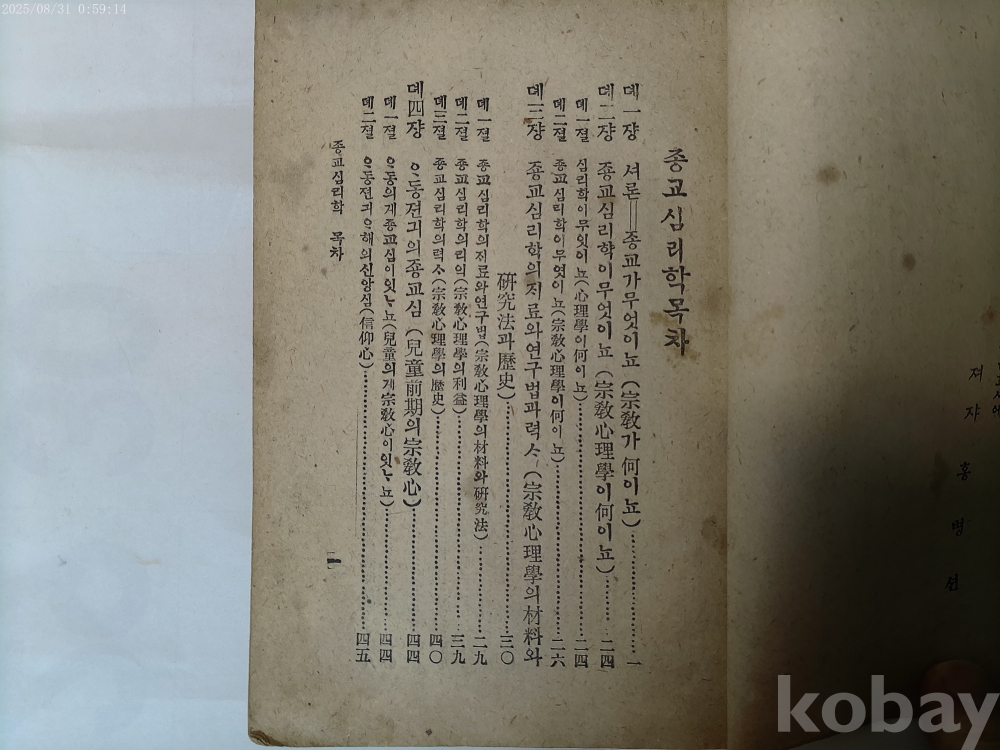 2025/08/31 0:59:14
져쟈 홍병선
종교심리학목차
뎨一쟝 셔론══종교가무엇이뇨(宗教가何이뇨)……一
뎨二쟝 종교심리학이무엇이뇨(宗教心理學이何이뇨)……二四
뎨一졀 심리학이무엇이뇨(心理學이何이뇨)……二四
뎨二졀 종교심리학이무엇이뇨(宗教心理學이何이뇨)……二六
뎨三쟝 죵교심리학의ᄌᆡ료와연구법과력ᄉᆞ(宗教心理學의材料와
硏究法과歷史)……三〇
뎨一졀 종교심리학의ᄌᆡ료와연구법(宗教心理學의材料와硏究法)……二九
뎨二졀 종교심리학의리익(宗教心理學의利益)……三九
뎨三졀 종교심리학의력ᄉᆞ(宗教心理學의歷史)……四〇
뎨四쟝 ᄋᆞ동젼긔의죵교심(兒童前期의宗教心)……四四
뎨一졀 ᄋᆞ동의게종교심이잇ᄂᆞ뇨(兒童의게宗教心이잇ᄂᆞ뇨)……四四
뎨二졀 ᄋᆞ동젼긔ᄋᆞ해의신앙심(信仰心)……四五
종교심리학 목차
一
kobay